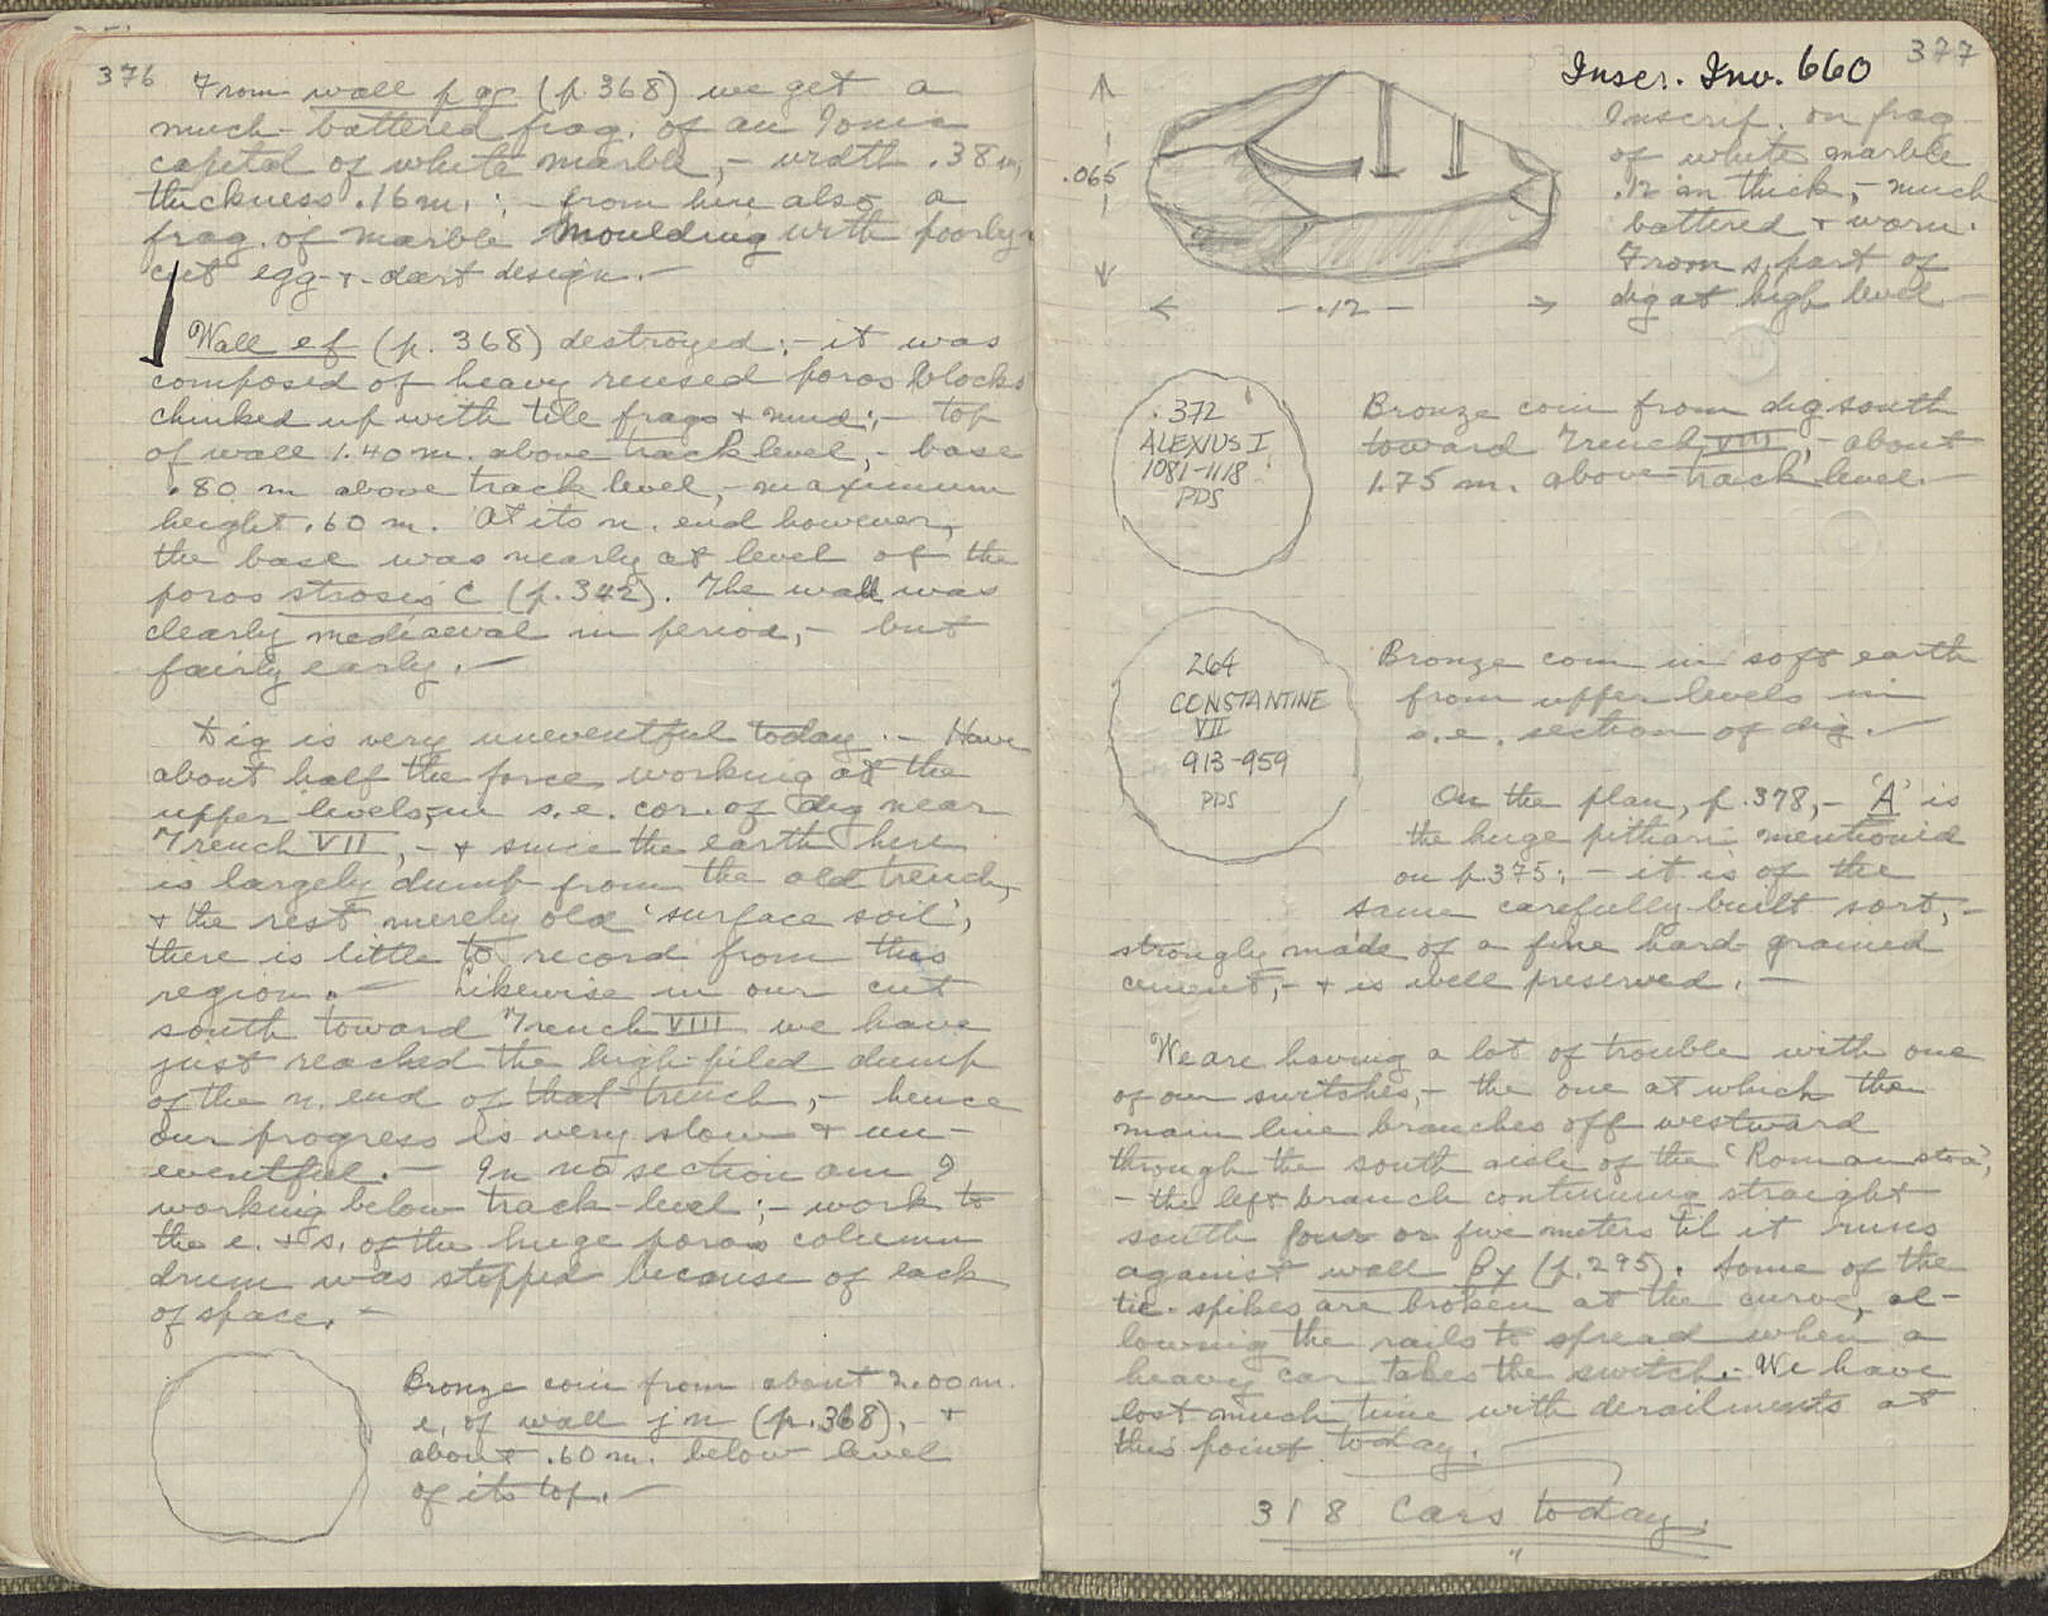 376
From wall p qr (p. 368) we get a
much-battered frag. of an Ionic
capital of white marble, - width .38 m,
thickness .16 m. ; - from here also a
frag. of marble moulding with poorly-
cut egg-+-dart design. -
Wall ef (p. 368) destroyed; - it was
composed of heavy reused poros blocks
chinked up with tile frags + mud; - top
of wall 1.40 m. above track level, - base
.80 m above track level, - maximum
height .60 m. At its n. end however,
the base was nearly at level of the
poros strosis C (p. 342). The wall was
clearly mediaeval in period, - but
fairly early. -
Dig is very uneventful today. - Have
about half the force working at the
upper levels, in s.e. cor. of dig near
Trench VII, - + since the earth here
is largely dump from the old trench,
+ the rest merely old 'surface soil',
there is little to record from this
region. - Likewise in our cut
south toward Trench VIII we have
just reached the high-piled dump
of the n. end of that trench, - hence
our progress is very slow + un-
eventful. - In no section am I
working below track-level; - work to
the e. + s. of the huge poros column
drum was stopped because of lack
of space. -
Bronze coin from about 2.00 m.
e. of wall jn (p. 368), - +
about .60 m. below level
of its top. -
377
Inscr. Inv. 660
Inscrip. on frag
of white marble
.12 m thick, - much
battered + worn.
From s. part of
dig at high level -
.065
- .12 -
372
ALEXIUS I
1081-1118
PDS
Bronze coin from dig south
toward Trench VIII, - about
1.75 m. above track level. -
264
CONSTANTINE
VII
913-959
PDS
Bronze coin in soft earth
from upper levels in
s.e. section of dig. -
On the plan, p. 378, - 'A' is
the huge pithari mentioned
on p. 375; - it is of the
same carefully-built sort, -
strongly made of a fine hard-grained
cement, - + is well preserved. -
We are having a lot of trouble with one
of our switches, - the one at which the
main line branches off westward
through the south aisle of the 'Roman stoa',
- the left branch continuing straight
south four or five meters til it runs
against wall βγ (p. 295). Some of the
tie-spikes are broken at the curve, al-
lowing the rails to spread when a
heavy car takes the switch. - We have
lost much time with derailments at
this point today. -
318 Cars today.